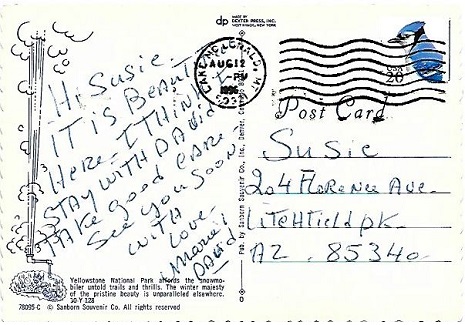 Hi Susie -
IT is Beauti
Here - I THINK I
STAY WITH DAVID
TAKE good CARE -
See you soon -
WITH
Love -
Marie!
DAVID
Yellowstone National Park affords the snowmo-
biler untold trails and thrills. The winter majesty
of the pristine beauty is unparalleled elsewhere.
YO Y 128
78095-C © Sanborn Souvenir Co. All rights reserved.
dp
MADE BY
DEXTER PRESS, INC.
WEST NYACK, NEW YORK
Pub. by Sanborn Souvenir Co., Inc., Denver,
LAKE MCDONALD, MT
AUG 12
PM
1996
USA
20
Post Card
Susie
204 Florence Ave -
Litchfield pk.
AZ. 85340 -